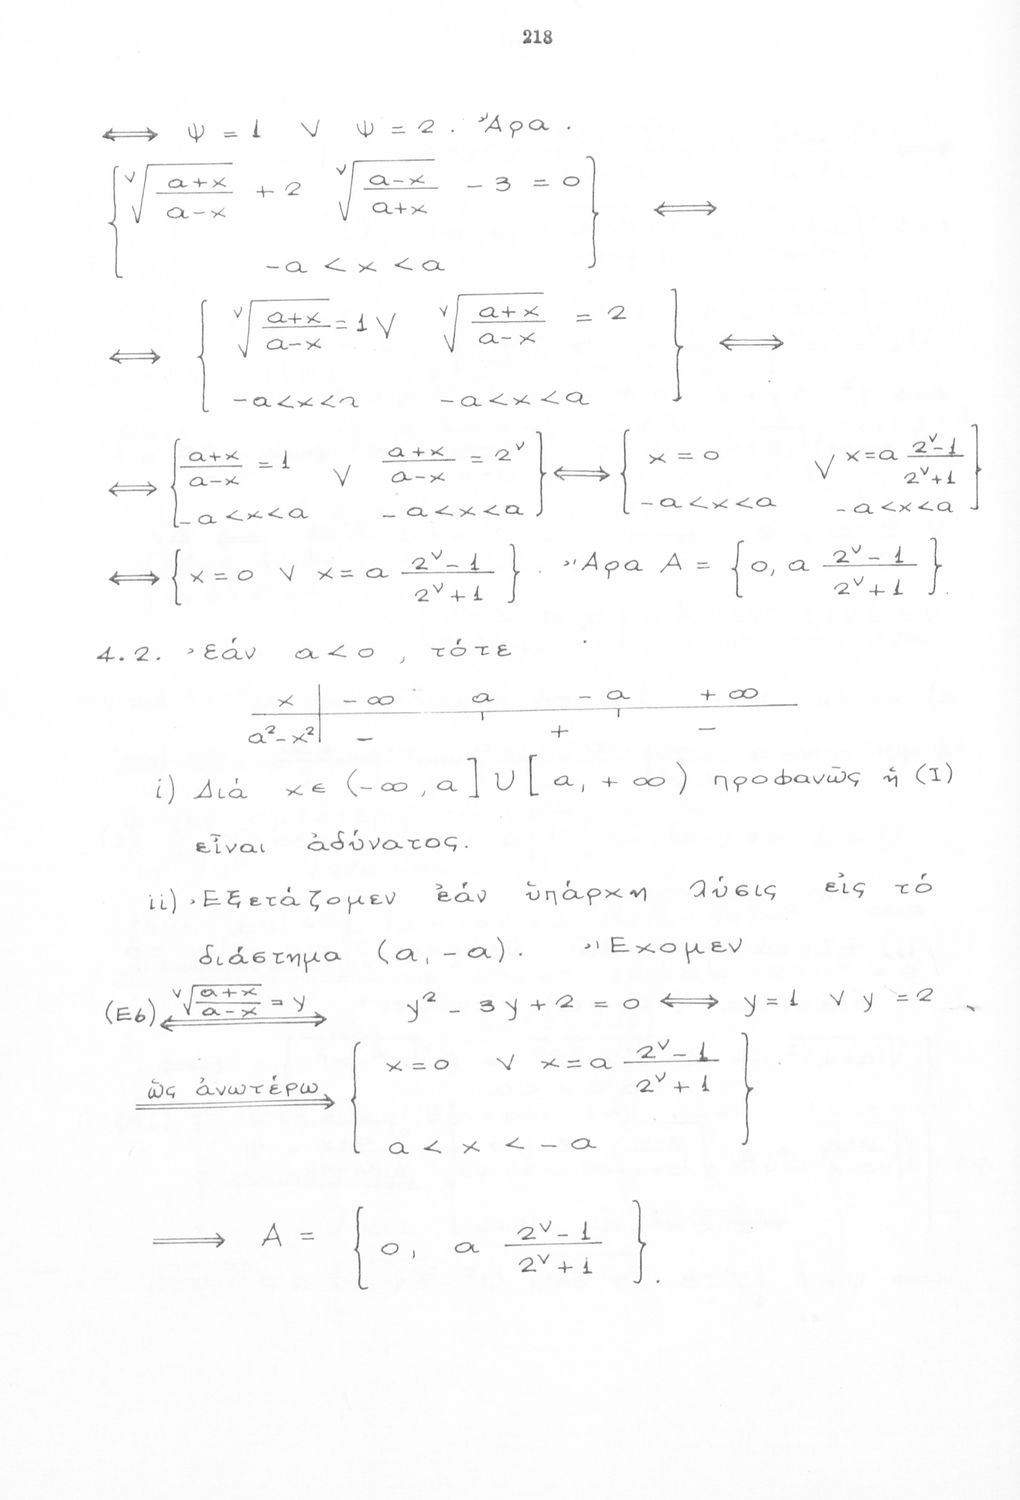 218
⟺ ψ = 1 ∨ ψ = 2 . Ἄρα .
{ ᵛ√((a+x)/(a-x)) + 2 ᵛ√((a-x)/(a+x)) - 3 = 0 } ⟺
-a < x < a
⟺ { ᵛ√((a+x)/(a-x)) = 1 ∨ ᵛ√((a+x)/(a-x)) = 2 } ⟺
-a<x<a -a<x<a
⟺ { (a+x)/(a-x) = 1 ∨ (a+x)/(a-x) = 2^ν } ⟺ { x = 0 ∨ x = a (2^ν-1)/(2^ν+1) }
-a<x<a -a<x<a -a<x<a -a<x<a
⟺ { x = 0 ∨ x = a (2^ν-1)/(2^ν+1) } . Ἄρα A = { 0, a (2^ν-1)/(2^ν+1) }.
4.2. Ἐάν a < 0 , τότε
x | -∞ a -a +∞
a²-x² | - + -
i) Διά x ∈ (-∞, a] ∪ [a, +∞) προφανῶς ἡ (I)
εἶναι ἀδύνατος.
ii) Ἐξετάζομεν ἐάν ὑπάρχη λύσις εἰς τό
διάστημα (a, -a). Ἔχομεν
(Ε6) ⟺ ᵛ√((a+x)/(a-x)) = y y² - 3y + 2 = 0 ⟺ y = 1 ∨ y = 2
ὡς ἀνωτέρω ⟹ { x = 0 ∨ x = a (2^ν-1)/(2^ν+1) }
a < x < -a
⟹ A = { 0, a (2^ν-1)/(2^ν+1) }.